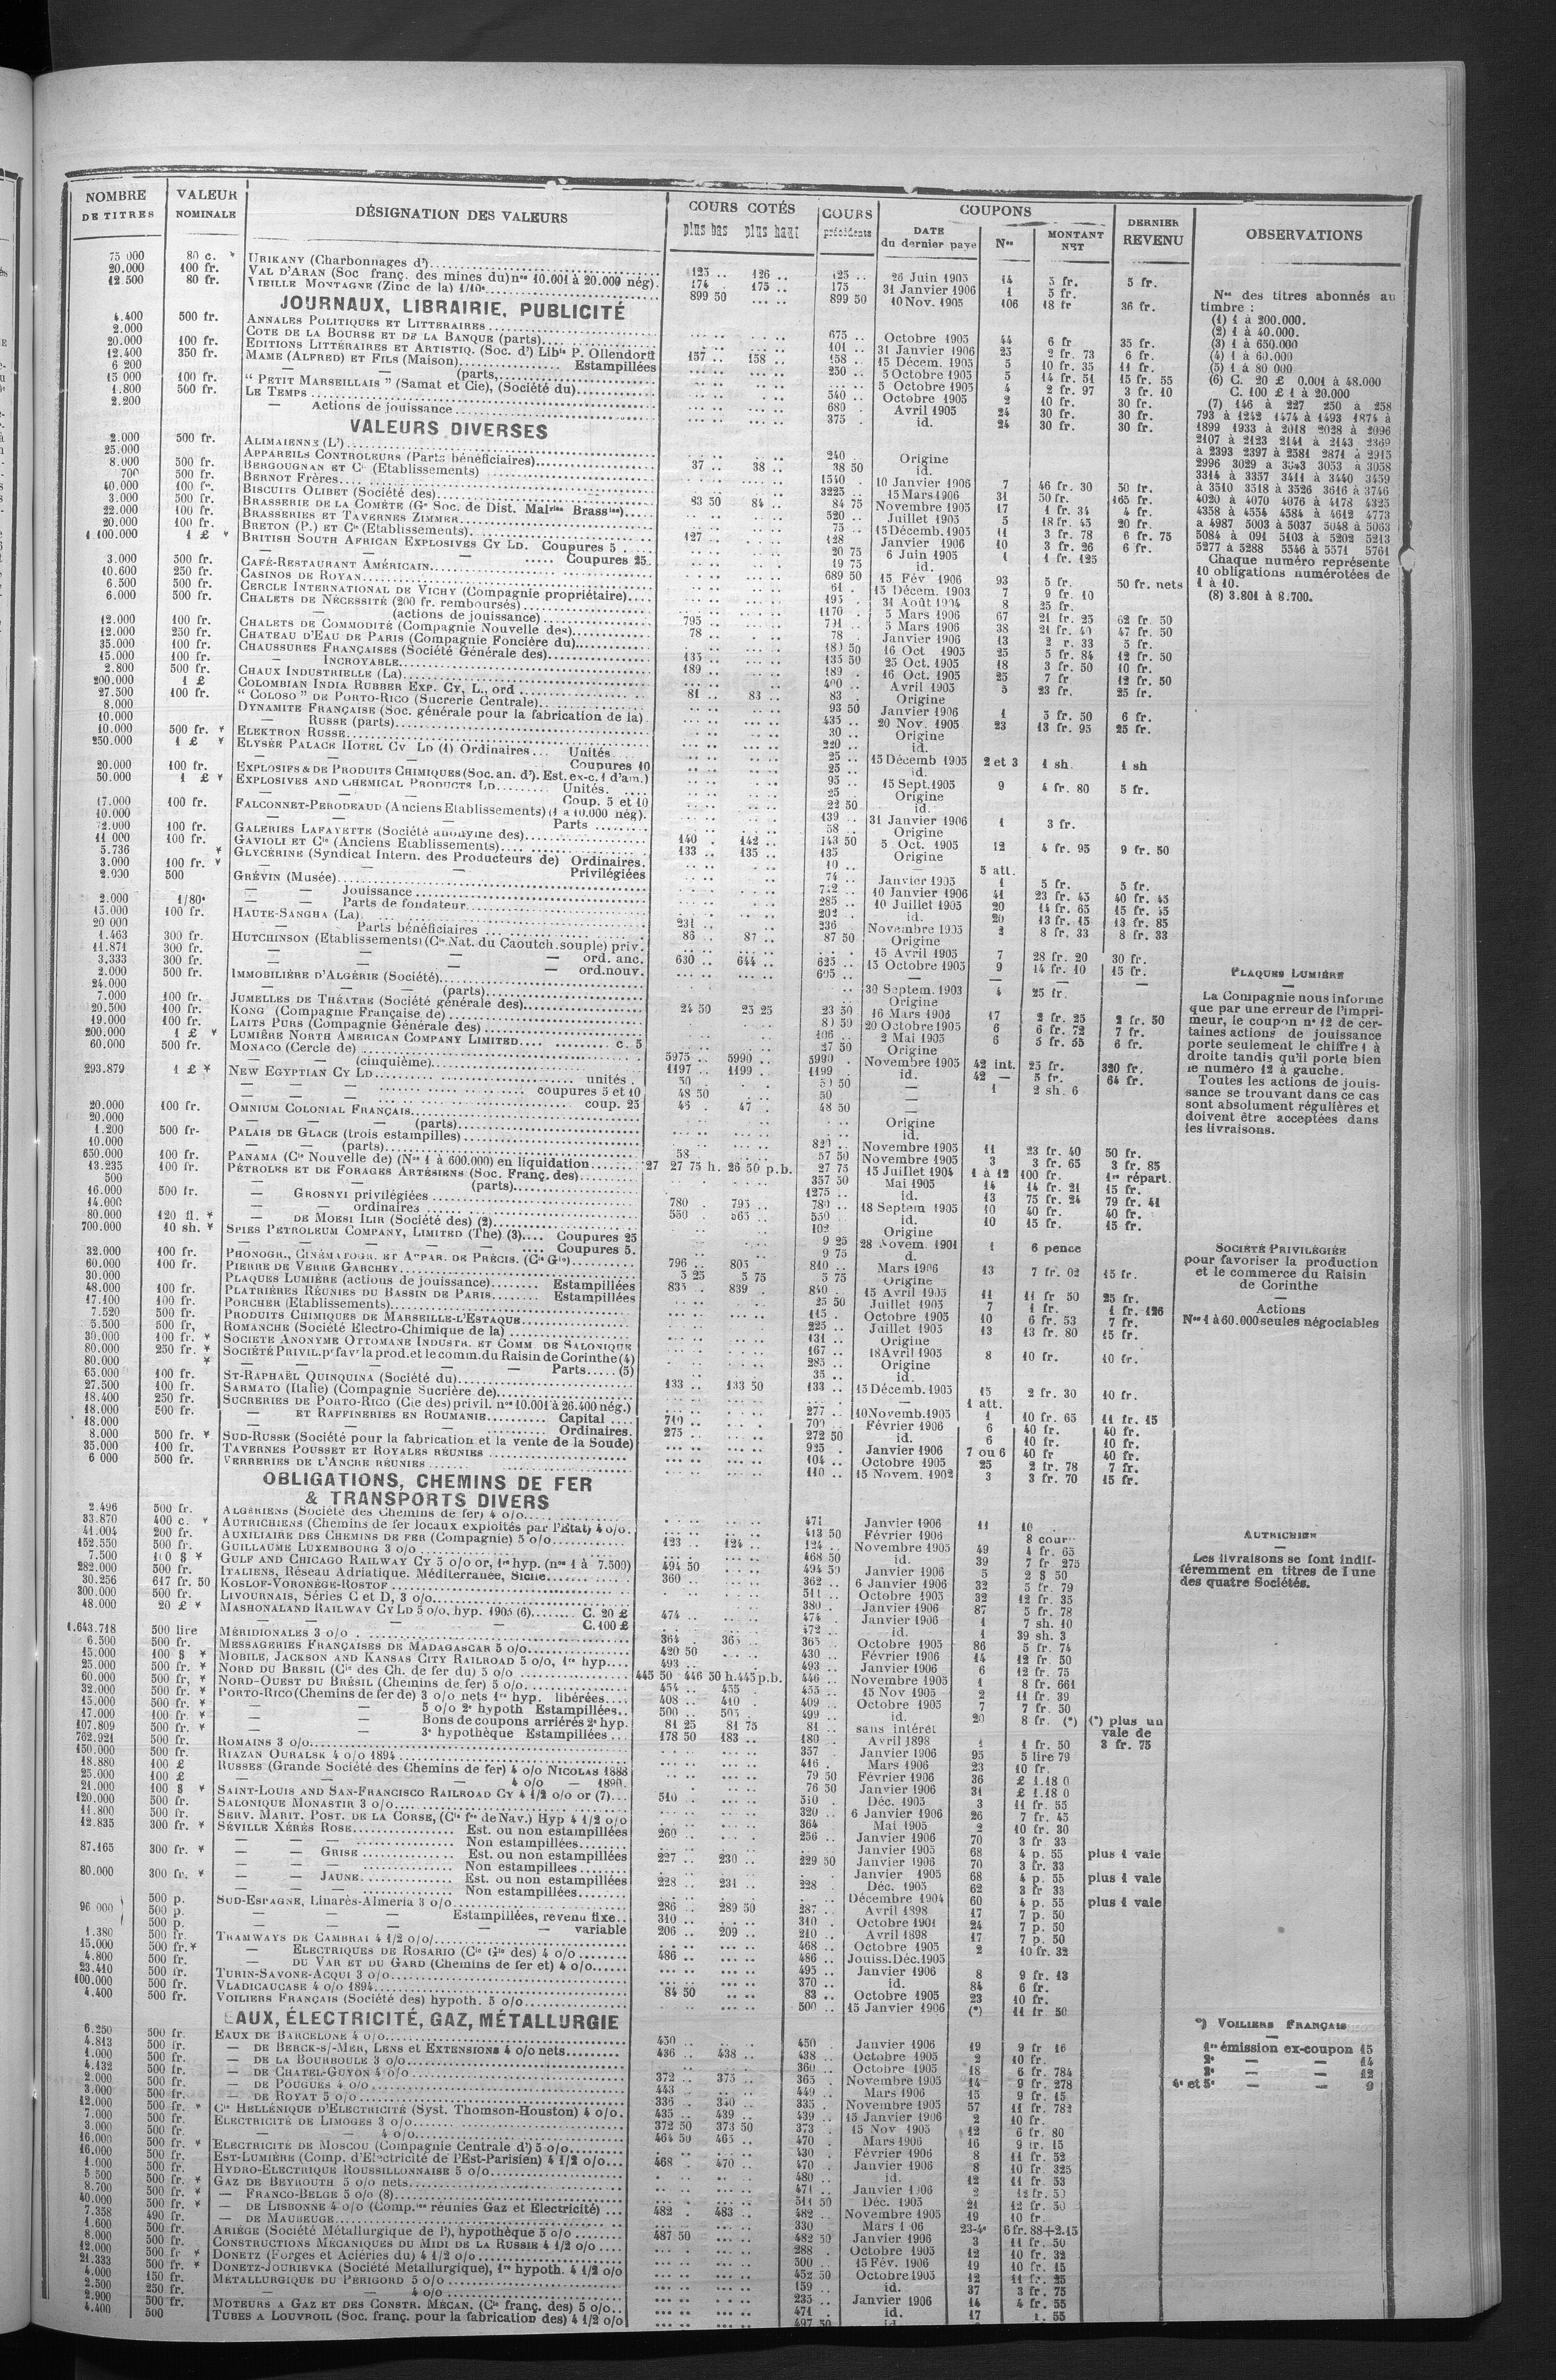 NOMBRE DE TITRES | VALEUR NOMINALE | DÉSIGNATION DES VALEURS | COURS COTÉS plus bas plus haut | COURS précédents | COUPONS DATE du dernier payé Nos MONTANT NET | DERNIER REVENU | OBSERVATIONS
75 000 80 c. * URIKANY (Charbonnages d') 125 .. 126 .. 125 .. 26 Juin 1905 14 5 fr. 5 fr.
20.000 100 fr. VAL D'ARAN (Soc franç. des mines du) nos 10.001 à 20.000 nég). 174 . 175 .. 175 31 Janvier 1906 1 5 fr.
12.500 80 fr. VIEILLE MONTAGNE (Zinc de la) 1/10e 899 50 899 50 10 Nov. 1905 106 18 fr 36 fr.
JOURNAUX, LIBRAIRIE, PUBLICITÉ
4.400 500 fr. ANNALES POLITIQUES ET LITTERAIRES 675 .. Octobre 1905 44 6 fr 35 fr.
2.000 COTE DE LA BOURSE ET DE LA BANQUE (parts) 101 .. 31 Janvier 1906 25 2 fr. 73 6 fr.
20.000 100 fr. EDITIONS LITTÉRAIRES ET ARTISTIQ. (Soc. d') Libie P. Ollendorff 157 .. 158 .. 158 .. 15 Décem. 1905 5 10 fr. 35 11 fr.
12.400 350 fr. MAME (ALFRED) ET FILS (Maison) Estampillées 250 .. 5 Octobre 1905 5 14 fr. 51 15 fr. 55
6 200 — (parts) 5 Octobre 1905 4 2 fr. 97 3 fr. 10
15 000 100 fr. “ PETIT MARSEILLAIS ” (Samat et Cie), (Société du) 540 .. Octobre 1905 2 10 fr. 30 fr.
1.800 500 fr. LE TEMPS 680 . Avril 1905 24 30 fr. 30 fr.
2.200 — Actions de jouissance 375 . id. 24 30 fr. 30 fr.
VALEURS DIVERSES
2.000 500 fr. ALIMAIENNE (L') 240 .. Origine
25.000 APPAREILS CONTROLEURS (Parts bénéficiaires) 37 .. 38 .. 38 50 id.
8.000 500 fr. BERGOUGNAN ET Cie (Etablissements) 1540 . 10 Janvier 1906 7 46 fr. 30 50 fr.
700 500 fr. BERNOT Frères 3225 .. 15 Mars 1906 31 50 fr. 165 fr.
40.000 100 fr. BISCUITS OLIBET (Société des) 83 50 84 .. 84 75 Novembre 1905 17 1 fr. 34 4 fr.
3.000 500 fr. BRASSERIE DE LA COMÈTE (Gde Soc. de Dist. Malries Brassies) 520 .. Juillet 1905 5 18 fr. 45 20 fr.
22.000 100 fr. BRASSERIES ET TAVERNES ZIMMER 75 .. 15 Décemb. 1905 11 3 fr. 78 6 fr. 75
20.000 100 fr. BRETON (P.) ET Cie (Etablissements) 127 .. 128 Janvier 1906 10 3 fr. 26 6 fr.
1.100.000 1 £ * BRITISH SOUTH AFRICAN EXPLOSIVES CY LD. Coupures 5 20 75 6 Juin 1905 1 1 fr. 125
— — Coupures 25 19 75 id.
3.000 500 fr. CAFÉ-RESTAURANT AMÉRICAIN 689 50 15 Fév 1906 93 5 fr. 50 fr. nets
10.600 250 fr. CASINOS DE ROYAN 61 . 15 Décem. 1903 7 9 fr. 10
6.500 500 fr. CERCLE INTERNATIONAL DE VICHY (Compagnie propriétaire) 195 . 31 Août 1904 8 25 fr.
6.000 500 fr. CHALETS DE NÉCESSITÉ (200 fr. remboursés) 1170 . 5 Mars 1906 67 21 fr. 25 62 fr. 50
— (actions de jouissance) 795 .. 791 .. 5 Mars 1906 38 21 fr. 40 47 fr. 50
12.000 100 fr. CHALETS DE COMMODITÉ (Compagnie Nouvelle des) 78 .. 78 . Janvier 1906 13 2 fr. 33 5 fr.
12.000 250 fr. CHATEAU D'EAU DE PARIS (Compagnie Foncière du) 180 50 16 Oct 1905 25 5 fr. 84 12 fr. 50
35.000 100 fr. CHAUSSURES FRANÇAISES (Société Générale des) 135 .. 135 50 25 Oct. 1905 18 3 fr. 50 10 fr.
15.000 100 fr. — INCROYABLE 189 .. 189 . 16 Oct. 1905 25 7 fr 12 fr. 50
2.800 500 fr. CHAUX INDUSTRIELLE (La) 400 .. Avril 1905 5 23 fr. 25 fr.
200.000 1 £ COLOMBIAN INDIA RUBBER EXP. CY, L., ord 81 .. 83 .. 83 . Origine
27.500 100 fr. “ COLOSO ” DE PORTO-RICO (Sucrerie Centrale) 93 50 Janvier 1906 1 5 fr. 50 6 fr.
8.000 DYNAMITE FRANÇAISE (Soc. générale pour la fabrication de la) 435 .. 20 Nov. 1905 23 13 fr. 95 25 fr.
10.000 — RUSSE (parts) 30 .. Origine
10.000 500 fr. * ELEKTRON RUSSE 220 .. id.
250.000 1 £ * ELYSÉE PALACE HOTEL CY LD (1) Ordinaires... Unités 25 .. 15 Décemb 1905 2 et 3 1 sh. 1 sh
— — Coupures 10 25 .. id.
20.000 100 fr. EXPLOSIFS & DE PRODUITS CHIMIQUES (Soc. an. d'). Est. ex-c. 1 d'am.) 95 .. 15 Sept. 1905 9 4 fr. 80 5 fr.
50.000 1 £ * EXPLOSIVES AND CHEMICAL PRODUCTS LD Unités. 25 Origine
— — Coup. 5 et 10 22 50 id.
17.000 100 fr. FALCONNET-PERODEAUD (Anciens Etablissements) (1 a 10.000 nég). 139 .. 31 Janvier 1906 1 3 fr.
10.000 — Parts 58 .. Origine
2.000 100 fr. GALERIES LAFAYETTE (Société anonyme des) 140 . 142 .. 143 50 5 Oct. 1905 12 4 fr. 95 9 fr. 50
11 000 100 fr. GAVIOLI ET Cie (Anciens Etablissements) 133 .. 135 .. 135 Origine
5.736 * GLYCÉRINE (Syndicat Intern. des Producteurs de) Ordinaires. 10 .. — 5 att.
3.000 100 fr. * — — Privilégiées 74 .. Janvier 1905 1 5 fr. 5 fr.
2.000 500 GRÉVIN (Musée) 712 .. 10 Janvier 1906 41 23 fr. 45 40 fr. 45
— — Jouissance 285 .. 10 Juillet 1905 20 14 fr. 65 15 fr. 45
2.000 1/80e — — Parts de fondateur 202 . id. 20 13 fr. 15 13 fr. 85
15.000 100 fr. HAUTE-SANGHA (La) 231 .. 236 Novembre 1905 2 8 fr. 33 8 fr. 33
20 000 — Parts bénéficiaires 86 .. 87 .. 87 50 Origine
1.463 300 fr. HUTCHINSON (Etablissements) (Cie Nat. du Caoutch. souple) priv. 15 Avril 1905 7 28 fr. 20 30 fr.
11.871 300 fr. — — ord. anc. 630 .. 644 .. 625 .. 15 Octobre 1905 9 14 fr. 10 15 fr.
3.333 300 fr. — — ord. nouv. 605 .. — — — —
2.000 500 fr. IMMOBILIÈRE D'ALGÉRIE (Société) 30 Septem. 1903 4 25 fr.
24.000 — (parts) Origine
7.000 100 fr. JUMELLES DE THÉATRE (Société générale des) 24 50 25 25 23 50 16 Mars 1906 17 2 fr. 25 2 fr. 50
20.500 100 fr. KONG (Compagnie Française de) 80 50 20 Octobre 1905 6 6 fr. 72 7 fr.
19.000 100 fr. LAITS PURS (Compagnie Générale des) 106 .. 2 Mai 1905 6 5 fr. 55 6 fr.
200.000 1 £ * LUMIÈRE NORTH AMERICAN COMPANY LIMITED c. 5 27 50 Origine
60.000 500 fr. MONACO (Cercle de) 5975 .. 5990 .. 5990 . Novembre 1905 42 int. 25 fr. 320 fr.
— (cinquième) 1197 .. 1199 . 1199 id. 42 — 5 fr. 64 fr.
293.879 1 £ * NEW EGYPTIAN CY LD unités . 50 .. 50 50 — 1 2 sh. 6
— — coupures 5 et 10 48 50 50 —
— — coup. 25 46 . 47 . 48 50 —
20.000 100 fr. OMNIUM COLONIAL FRANÇAIS Origine
20.000 — (parts) id.
1.200 500 fr- PALAIS DE GLACE (trois estampilles) 820 .. Novembre 1905 11 23 fr. 40 50 fr.
10.000 — (parts) 58 .. 57 50 Novembre 1905 3 3 fr. 65 3 fr. 85
650.000 100 fr. PANAMA (Cie Nouvelle de) (Nos 1 à 600.000) en liquidation 27 27 75 h. 26 50 p.b. 27 75 15 Juillet 1904 1 à 12 100 fr. 1re répart.
13.235 100 fr. PÉTROLES ET DE FORAGES ARTÉSIENS (Soc. Franç. des) 357 50 Mai 1905 14 14 fr. 21 15 fr.
500 — (parts) 1275 .. id. 13 75 fr. 24 79 fr. 41
16.000 500 fr. — GROSNYI privilégiées 780 . 795 .. 780 .. 18 Septem 1905 10 40 fr. 40 fr.
14.000 — ordinaires 550 . 565 .. 550 id. 10 15 fr. 15 fr.
80.000 120 fl. * — DE MOESI ILIR (Société des) (2) 102 Origine
700.000 10 sh. * SPIES PETROLEUM COMPANY, LIMITED (The) (3) Coupures 25 9 25 28 Novem. 1901 1 6 pence
— — Coupures 5. 9 75 d.
32.000 100 fr. PHONOGR., CINÉMATOGR. ET APPAR. DE PRÉCIS. (Cie Gle) 796 .. 805 840 .. Mars 1906 13 7 fr. 02 15 fr.
60.000 100 fr. PIERRE DE VERRE GARCHEY 5 25 5 75 5 75 Origine
30.000 PLAQUES LUMIÈRE (actions de jouissance) Estampillées 835 . 839 . 840 .. 15 Avril 1905 11 11 fr 50 25 fr.
48.000 100 fr. PLATRIÈRES RÉUNIES DU BASSIN DE PARIS Estampillées 25 50 Juillet 1905 7 1 fr. 1 fr. 126
17.100 100 fr. PORCHER (Etablissements) 115 . Octobre 1905 10 6 fr. 53 7 fr.
7.520 500 fr. PRODUITS CHIMIQUES DE MARSEILLE-L'ESTAQUE 225 .. Juillet 1905 13 13 fr. 80 15 fr.
5.500 500 fr, ROMANCHE (Société Electro-Chimique de la) 131 .. Origine
30.000 100 fr. * SOCIETE ANONYME OTTOMANE INDUSTR. ET COMM. DE SALONIQUE 167 .. 18 Avril 1905 8 10 fr. 10 fr.
80.000 250 fr. * SOCIÉTÉ PRIVIL. pr favr la prod. et le comm. du Raisin de Corinthe (4) 285 .. Origine
80.000 * — — Parts (5) 35 .. id.
65.000 100 fr. ST-RAPHAËL QUINQUINA (Société du) 133 .. 133 50 133 .. 15 Décemb. 1905 15 2 fr. 30 10 fr.
27.500 100 fr. SARMATO (Italie) (Compagnie Sucrière de) — 1 att.
18.400 250 fr. SUCRERIES DE PORTO-RICO (Cie des) privil. nos 10.001 à 26.400 nég.) 277 .. 10 Novemb. 1905 1 10 fr. 65 11 fr. 15
18.000 500 fr. — ET RAFFINERIES EN ROUMANIE Capital 710 .. 700 .. Février 1906 6 40 fr. 40 fr.
18.000 — — Ordinaires. 275 .. 272 50 id. 6 10 fr. 10 fr.
8.000 500 fr. * SUD-RUSSE (Société pour la fabrication et la vente de la Soude) 925 . Janvier 1906 7 ou 6 40 fr 40 fr.
35.000 100 fr. TAVERNES POUSSET ET ROYALES RÉUNIES 104 .. Octobre 1905 25 2 fr. 78 7 fr.
6 000 500 fr. VERRERIES DE L'ANCRE RÉUNIES 110 .. 15 Novem. 1902 3 3 fr. 70 15 fr.
OBLIGATIONS, CHEMINS DE FER
& TRANSPORTS DIVERS
2.496 500 fr. ALGÉRIENS (Société des Chemins de fer) 4 o/o 471 Janvier 1906 11 10
33.870 400 c. * AUTRICHIENS (Chemins de fer locaux exploités par l'Etat) 4 o/o. 413 50 Février 1906 8 cour
41.004 200 fr. AUXILIAIRE DES CHEMINS DE FER (Compagnie) 5 o/o 123 .. 124 .. 124 .. Novembre 1905 49 4 fr. 65
152.550 500 fr. GUILLAUME LUXEMBOURG 3 o/o 468 50 id. 39 7 fr. 275
7.500 100 $ * GULF AND CHICAGO RAILWAY CY 5 o/o or, 1re hyp. (nos 1 à 7.500) 494 50 494 50 Janvier 1906 5 2 $ 50
282.000 500 fr. ITALIENS, Réseau Adriatique. Méditerranée, Sicile 360 .. 362 .. 6 Janvier 1906 32 5 fr. 79
30.256 617 fr. 50 KOSLOF-VORONÈGE-ROSTOF 511 .. Octobre 1905 32 12 fr. 35
300.000 500 fr. LIVOURNAIS, Séries C et D, 3 o/o 380 . Janvier 1906 87 5 fr. 78
48.000 20 £ * MASHONALAND RAILWAY CY LD 5 o/o, hyp. 1905 (6) C. 20 £ 474 .. 474 . Janvier 1906 1 7 sh. 10
— — C. 100 £ 472 .. id. 1 39 sh. 3
1.643.718 500 lire MÉRIDIONALES 3 o/o 364 . 365 .. 365 .. Octobre 1905 86 5 fr. 74
6.500 500 fr. MESSAGERIES FRANÇAISES DE MADAGASCAR 5 o/o 420 50 430 .. Février 1906 14 12 fr. 50
15.000 100 $ * MOBILE, JACKSON AND KANSAS CITY RAILROAD 5 o/o, 1re hyp 493 .. 493 .. Janvier 1906 6 12 fr. 75
25.000 500 fr. * NORD DU BRESIL (Cie des Ch. de fer du) 5 o/o 445 50 446 50 h. 445 p.b. 446 .. Novembre 1905 1 8 fr. 661
60.000 500 fr, * NORD-OUEST DU BRÉSIL (Chemins de fer) 5 o/o 454 .. 455 . 455 .. 15 Nov 1905 2 11 fr. 39
32.000 500 fr. * PORTO-RICO (Chemins de fer de) 3 o/o nets 1re hyp. libérées 408 .. 410 . 409 .. Octobre 1905 7 7 fr. 50
15.000 500 fr. * — 5 o/o 2e hypoth Estampillées 500 .. 505 . 499 .. id. 20 8 fr. (*) (*) plus un vale de 3 fr. 75
17.000 100 fr. * — Bons de coupons arriérés 2e hyp. 81 25 81 75 81 .. sans intérêt
107.809 500 fr. * — 3e hypothèque Estampillées 178 50 183 .. 180 . Avril 1898 1 1 fr. 50
762.921 500 fr. ROMAINS 3 o/o 357 . Janvier 1906 95 5 lire 79
150.000 500 fr. RIAZAN OURALSK 4 o/o 1894 416 . Mars 1906 23 10 fr.
18.880 100 £ RUSSES (Grande Société des Chemins de fer) 4 o/o NICOLAS 1888 79 50 Février 1906 36 £ 1.18 0
25.000 100 £ — — 4 o/o — 1890. 76 50 Janvier 1906 31 £ 1.18 0
21.000 100 $ * SAINT-LOUIS AND SAN-FRANCISCO RAILROAD CY 4 1/2 o/o or (7) 510 .. 510 . Déc. 1905 3 11 fr. 55
120.000 500 fr. SALONIQUE MONASTIR 3 o/o 320 .. 6 Janvier 1906 26 7 fr. 45
11.800 500 fr. SERV. MARIT. POST. DE LA CORSE, (Cie fse de Nav.) Hyp 4 1/2 o/o 364 Mai 1905 2 10 fr. 30
12.835 300 fr. * SÉVILLE XÉRÈS ROSE Est. ou non estampillées 260 .. 256 .. Janvier 1906 70 3 fr 33
— — Non estampillées Janvier 1905 68 4 p. 55 plus 1 vale
87.165 300 fr. * — — GRISE Est. ou non estampillées 227 .. 230 .. 229 50 Janvier 1906 70 3 fr. 33
— — Non estampillees Janvier 1905 68 4 p. 55 plus 1 vale
80.000 300 fr. * — — JAUNE Est. ou non estampillées 228 .. 231 .. 228 . Déc. 1905 62 3 fr 33
— — Non estampillées Décembre 1904 60 4 p. 55 plus 1 vale
96 000 500 p. SUD-ESPAGNE, Linarès-Almeria 3 o/o 286 .. 289 50 287 .. Avril 1898 17 7 p. 50
500 p. — — Estampillées, revenu fixe 310 .. 310 . Octobre 1901 24 7 p. 50
500 p. — — variable 206 .. 209 .. 210 .. Avril 1898 17 7 p. 50
1.380 500 fr. TRAMWAYS DE CAMBRAI 4 1/2 o/o 468 .. Octobre 1905 2 10 fr. 32
15.000 500 fr. * — ELECTRIQUES DE ROSARIO (Cie Gle des) 4 o/o 486 .. 486 .. Jouiss. Déc. 1905
4.800 500 fr. — DU VAR ET DU GARD (Chemins de fer et) 4 o/o 495 .. Janvier 1906 8 9 fr. 13
23.410 500 fr. TURIN-SAVONE-ACQUI 3 o/o 370 .. id. 84 6 fr.
100.000 500 fr. VLADICAUCASE 4 o/o 1894 84 50 83 .. Octobre 1905 23 10 fr.
4.400 500 fr. VOILIERS FRANÇAIS (Société des) hypoth. 5 o/o 500 .. 15 Janvier 1906 (*) 11 fr 50
EAUX, ÉLECTRICITÉ, GAZ, MÉTALLURGIE
6.250 500 fr. EAUX DE BARCELONE 4 o/o 450 .. 450 . Janvier 1906 19 9 fr 16
4.813 500 fr. — DE BERCK-S/-MER, LENS et EXTENSIONS 4 o/o nets 436 .. 438 .. 438 .. Octobre 1905 2 10 fr.
1.000 500 fr. — DE LA BOURBOULE 3 o/o 360 . Octobre 1905 18 6 fr. 784
4.132 500 fr. — DE CHATEL-GUYON 4 o/o 372 .. 375 .. 365 . Novembre 1905 14 9 fr. 278
2.000 500 fr. — DE POUGUES 4 o/o 443 .. 449 .. Mars 1906 15 9 fr. 15
3.000 500 fr. — DE ROYAT 5 o/o 336 .. 340 .. 335 . Novembre 1905 57 11 fr. 782
12.000 500 fr. * Cie HELLÉNIQUE D'ELECTRICITÉ (Syst. Thomson-Houston) 4 o/o. 435 .. 439 .. 439 .. 15 Janvier 1906 2 10 fr.
7.000 500 fr. ELECTRICITÉ DE LIMOGES 3 o/o 372 50 373 50 373 . 15 Nov 1905 12 6 fr. 80
3.000 500 fr. — — 4 o/o 464 50 465 .. 470 . Mars 1906 16 9 fr. 15
16.000 500 fr. * ELECTRICITÉ DE MOSCOU (Compagnie Centrale d') 5 o/o 430 . Février 1906 8 11 fr. 52
16.000 500 fr. EST-LUMIÈRE (Comp. d'Electricité de l'Est-Parisien) 4 1/2 o/o 468 . 470 .. 470 .. Janvier 1906 8 10 fr. 325
1.000 500 fr. HYDRO-ELECTRIQUE ROUSSILLONNAISE 5 o/o 480 .. id. 12 11 fr. 53
5 500 500 fr. * GAZ DE BEYROUTH 5 o/o nets 471 .. Janvier 1906 2 12 fr. 50
8.700 500 fr. * — FRANCO-BELGE 5 o/o (8) 511 50 Déc. 1905 21 12 fr. 50
40.000 500 fr. * — DE LISBONNE 4 o/o (Comp.ies réunies Gaz et Electricité) 482 . 483 .. 482 .. Novembre 1905 19 10 fr.
7.358 490 fr. — DE MAUBEUGE 330 Mars 1 06 23-4e 6 fr. 88+2.15
1.600 500 fr. ARIÈGE (Société Métallurgique de l'), hypothèque 5 o/o 487 50 482 50 Janvier 1906 3 11 fr. 50
8.000 500 fr. CONSTRUCTIONS MÉCANIQUES DU MIDI DE LA RUSSIE 4 1/2 o/o 288 . Octobre 1905 12 10 fr. 32
12.000 500 fr * DONETZ (Forges et Aciéries du) 4 1/2 o/o 500 .. 15 Fév. 1906 19 10 fr. 15
21.333 500 fr. * DONETZ-JOURIEVKA (Société Métallurgique), 1re hypoth. 4 1/2 o/o 452 50 Octobre 1905 12 11 fr. 25
4.000 150 fr. MÉTALLURGIQUE DU PÉRIGORD 5 o/o 159 .. id. 37 3 fr. 75
2.500 250 fr. — — 4 o/o 235 .. Janvier 1906 14 4 fr. 55
2.900 500 fr. MOTEURS A GAZ ET DES CONSTR. MÉCAN. (Cie franç. des) 5 o/o 471 . id. 17
4.400 500 TUBES A LOUVROIL (Soc. franç. pour la fabrication des) 4 1/2 o/o 497 50 id
Nos des titres abonnés au
timbre :
(1) 1 à 200.000.
(2) 1 à 40.000.
(3) 1 à 650.000
(4) 1 à 60.000
(5) 1 à 80 000
(6) C. 20 £ 0.001 à 48.000
C. 100 £ 1 à 20.000
(7) 146 à 227 250 à 258
793 à 1242 1474 à 1493 1874 à
1899 1933 à 2018 2028 à 2096
2107 à 2123 2141 à 2143 2369
à 2393 2397 à 2581 2871 à 2915
2996 3029 a 3043 3053 à 3058
3314 à 3357 3411 à 3440 3459
à 3510 3518 à 3526 3616 à 3746
4020 à 4070 4076 à 4178 4325
4358 à 4554 4584 à 4612 4773
a 4987 5003 à 5037 5048 à 5063
5084 à 091 5103 à 5202 5213
5277 à 5288 5546 à 5571 5761
Chaque numéro représente
10 obligations numérotées de
1 à 10.
(8) 3.801 à 8.700.
PLAQUES LUMIÈRE
La Compagnie nous informe
que par une erreur de l'impri-
meur, le coupon n° 12 de cer-
taines actions de jouissance
porte seulement le chiffre 1 à
droite tandis qu'il porte bien
le numéro 12 à gauche.
Toutes les actions de jouis-
sance se trouvant dans ce cas
sont absolument régulières et
doivent être acceptées dans
les livraisons.
SOCIÉTÉ PRIVILÉGIÉE
pour favoriser la production
et le commerce du Raisin
de Corinthe
—
Actions
Nos 1 à 60.000 seules négociables
AUTRICHIEN
—
Les livraisons se font indif-
féremment en titres de l'une
des quatre Sociétés.
*) VOILIERS FRANÇAIS
—
1re émission ex-coupon 15
2e — — 14
3e — — 12
4e et 5e — — 9